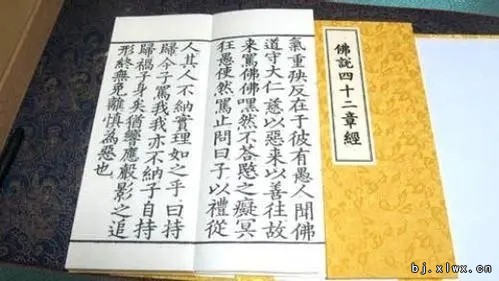 佛說四十二章經
氣重殃反在于彼有愚人聞佛
道守大仁慈以惡來以善往故
來罵佛佛嘿然不答愍之癡冥
狂愚使然罵止問曰子以禮從
人其人不納實理如之乎曰持
歸今子罵我我亦不納子自持
歸禍子身矣猶響應聲影之追
形終無免離慎為惡也
bj.xlwx.cn